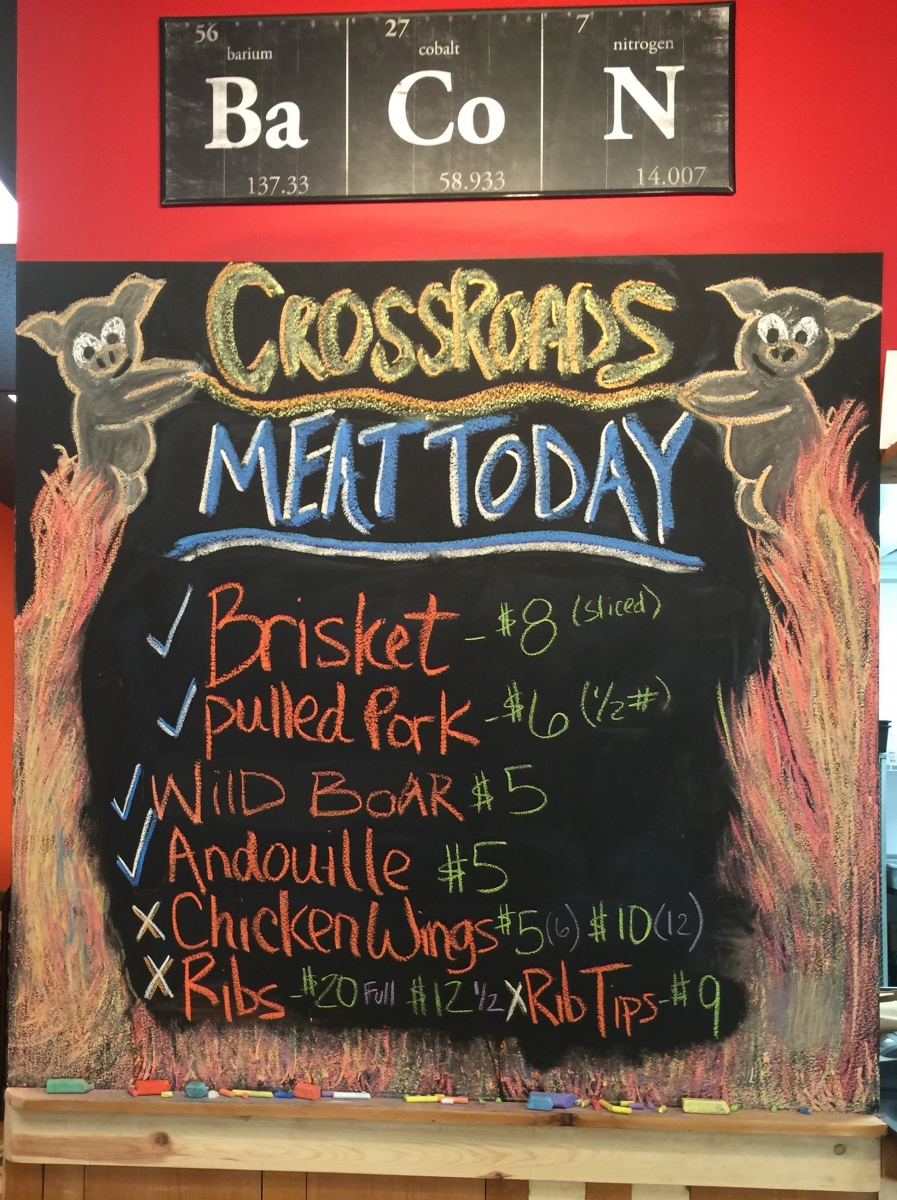 56 27 7
barium cobalt nitrogen
Ba Co N
137.33 58.933 14.007
CROSSROADS
MEAT TODAY
✓ Brisket - $8 (sliced)
✓ pulled Pork - $6 (1/2#)
✓ WilD BOAR $5
✓ Andouille $5
X Chicken Wings $5 (6) $10 (12)
X Ribs - $20 Full $12 1/2 X Rib Tips - $9